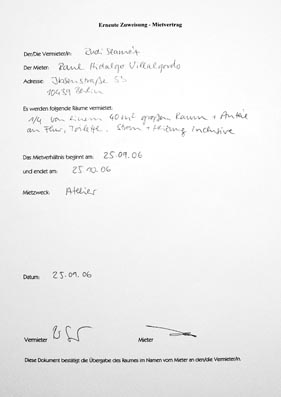 Erneute Zuweisung - Mietvertrag
Der/Die Vermieter/in: Rudi
Der Mieter: Raul Hidalgo Villalgordo
Adresse: Ibsenstraße 53
10439 Berlin
Es werden folgende Räume vermietet:
1/4 von einem 40 m² großen Raum +
an Flur, Toilette. Strom + Heizung Inclusive
Das Mietverhältnis beginnt am: 25.09.06
und endet am: 25.10.06
Mietzweck: Atelier
Datum: 25.09.06
Vermieter Mieter
Diese Dokument bestätigt die Übergabe des Raumes im Namen vom Mieter an den/die Vermieter/in.